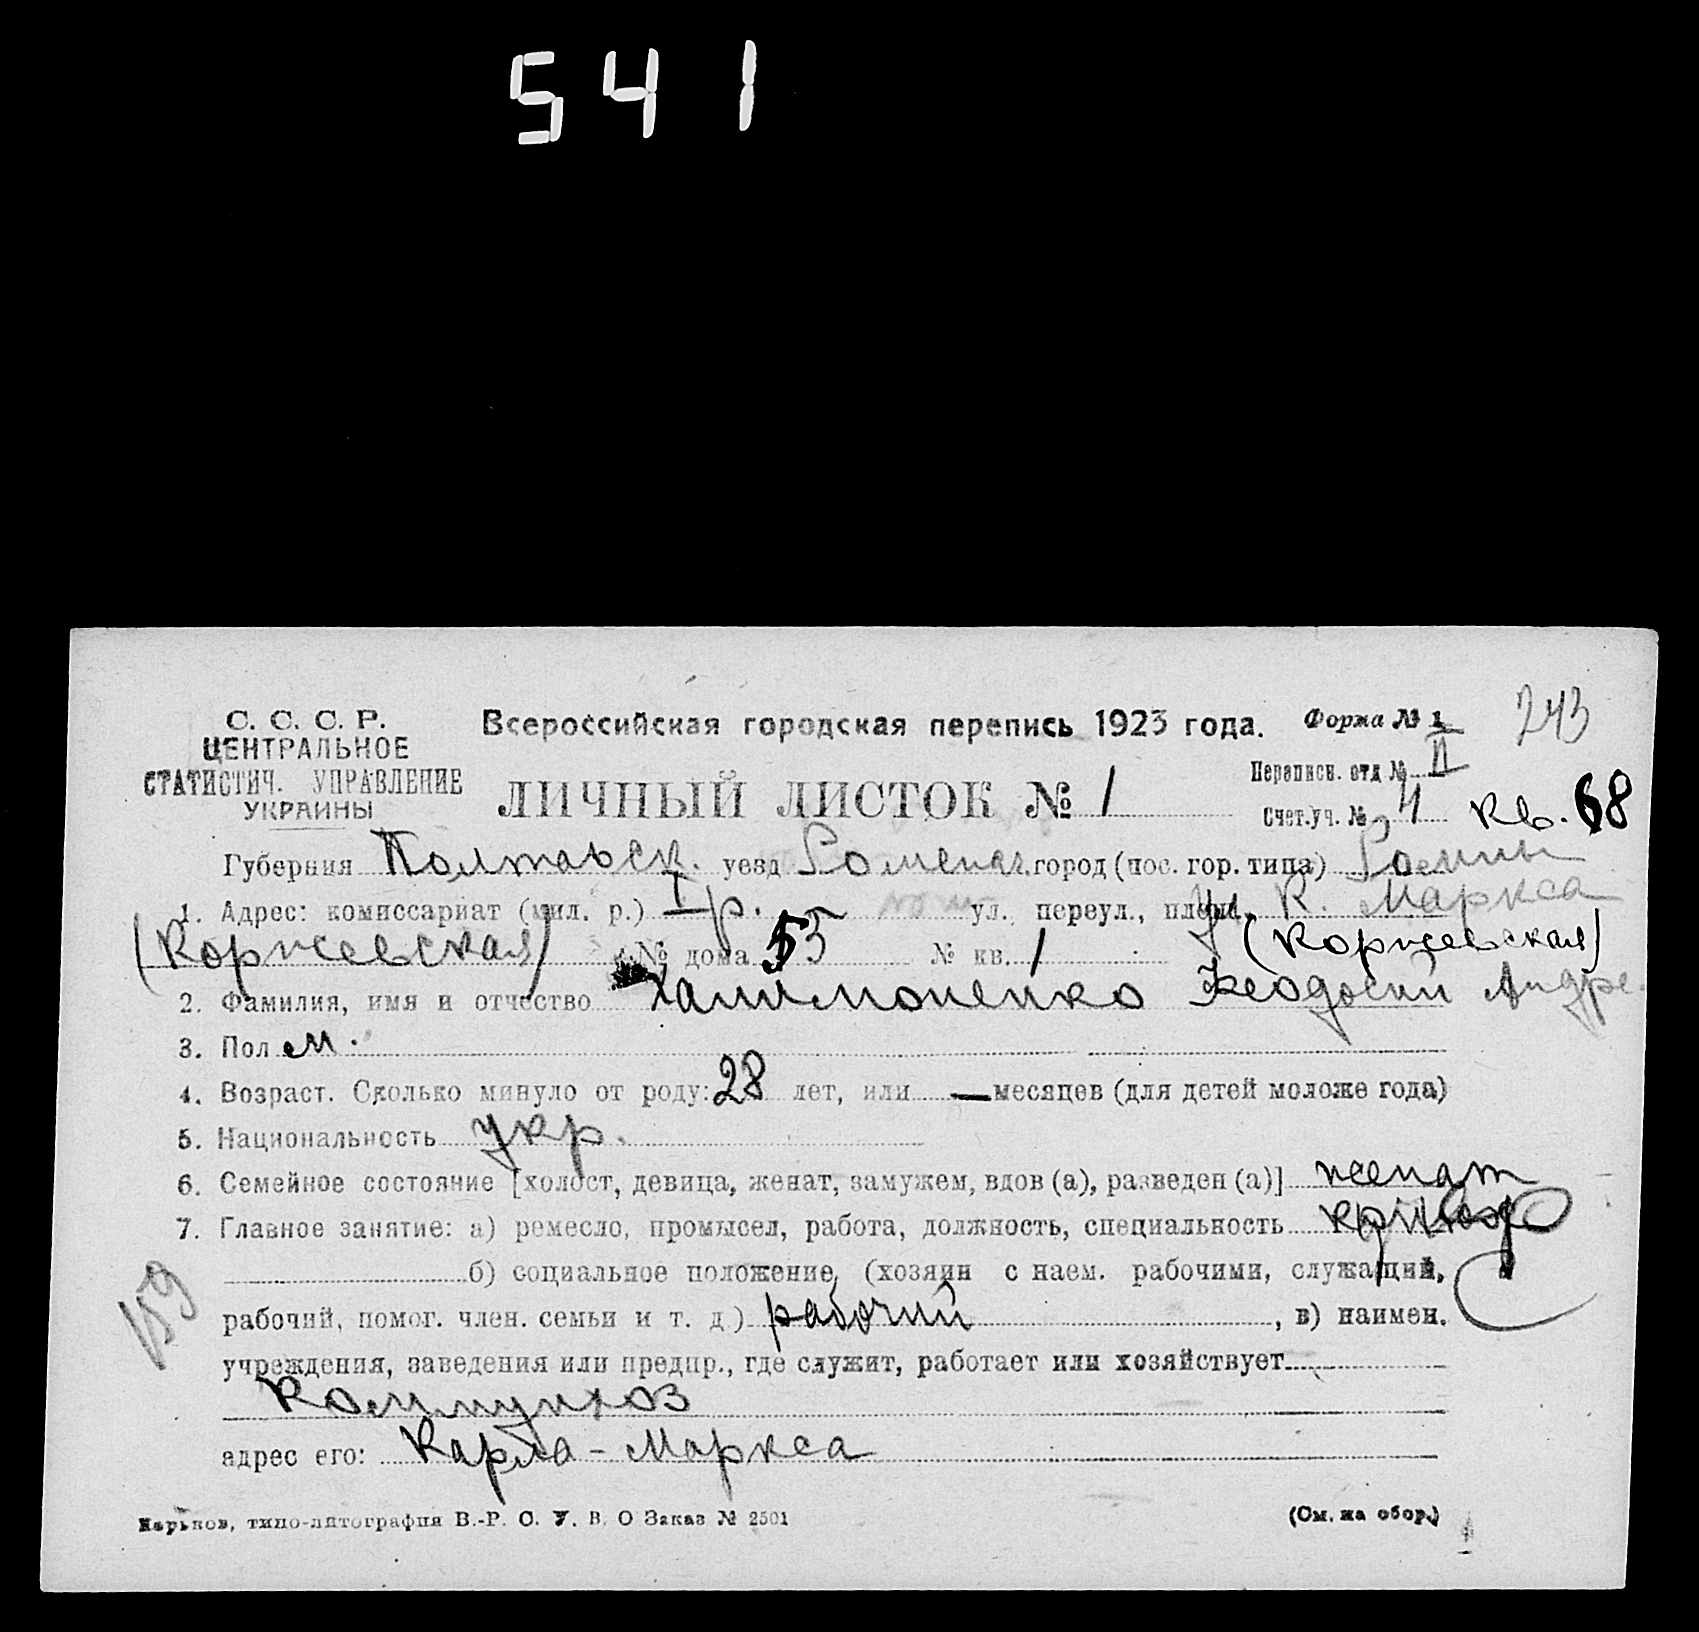 541
С. С. С. Р.
ЦЕНТРАЛЬНОЕ
СТАТИСТИЧ. УПРАВЛЕНИЕ
УКРАИНЫ
Всероссийская городская перепись 1923 года.
Форма № 1
243
ЛИЧНЫЙ ЛИСТОК № 1
Переписн. отд № II
Счет.уч. № 4 кв. 68
Губерния Полтавск. уезд Роменск. город (пос. гор. типа) Ромны
1. Адрес: комиссариат (мил. р.) I р. ул. переул., площ. ул. К. Маркса
(Коржевская) № дома 55 № кв. 1 (Коржевская)
2. Фамилия, имя и отчество Халимоненко Феодосий Андре.
3. Пол м.
4. Возраст. Сколько минуло от роду: 28 лет, или — месяцев (для детей моложе года)
5. Национальность укр.
6. Семейное состояние [холост, девица, женат, замужем, вдов (а), разведен (а)] женат
7. Главное занятие: а) ремесло, промысел, работа, должность, специальность
б) социальное положение, (хозяин с наем. рабочими, служащий,
159
рабочий, помог. член. семьи и т. д) рабочий, в) наимен.
учреждения, заведения или предпр., где служит, работает или хозяйствует
Коммунхоз
адрес его: Карла-Маркса
Харьков, типо-литография В.-Р. С. У. В. О Заказ № 2501
(См. на обор.)